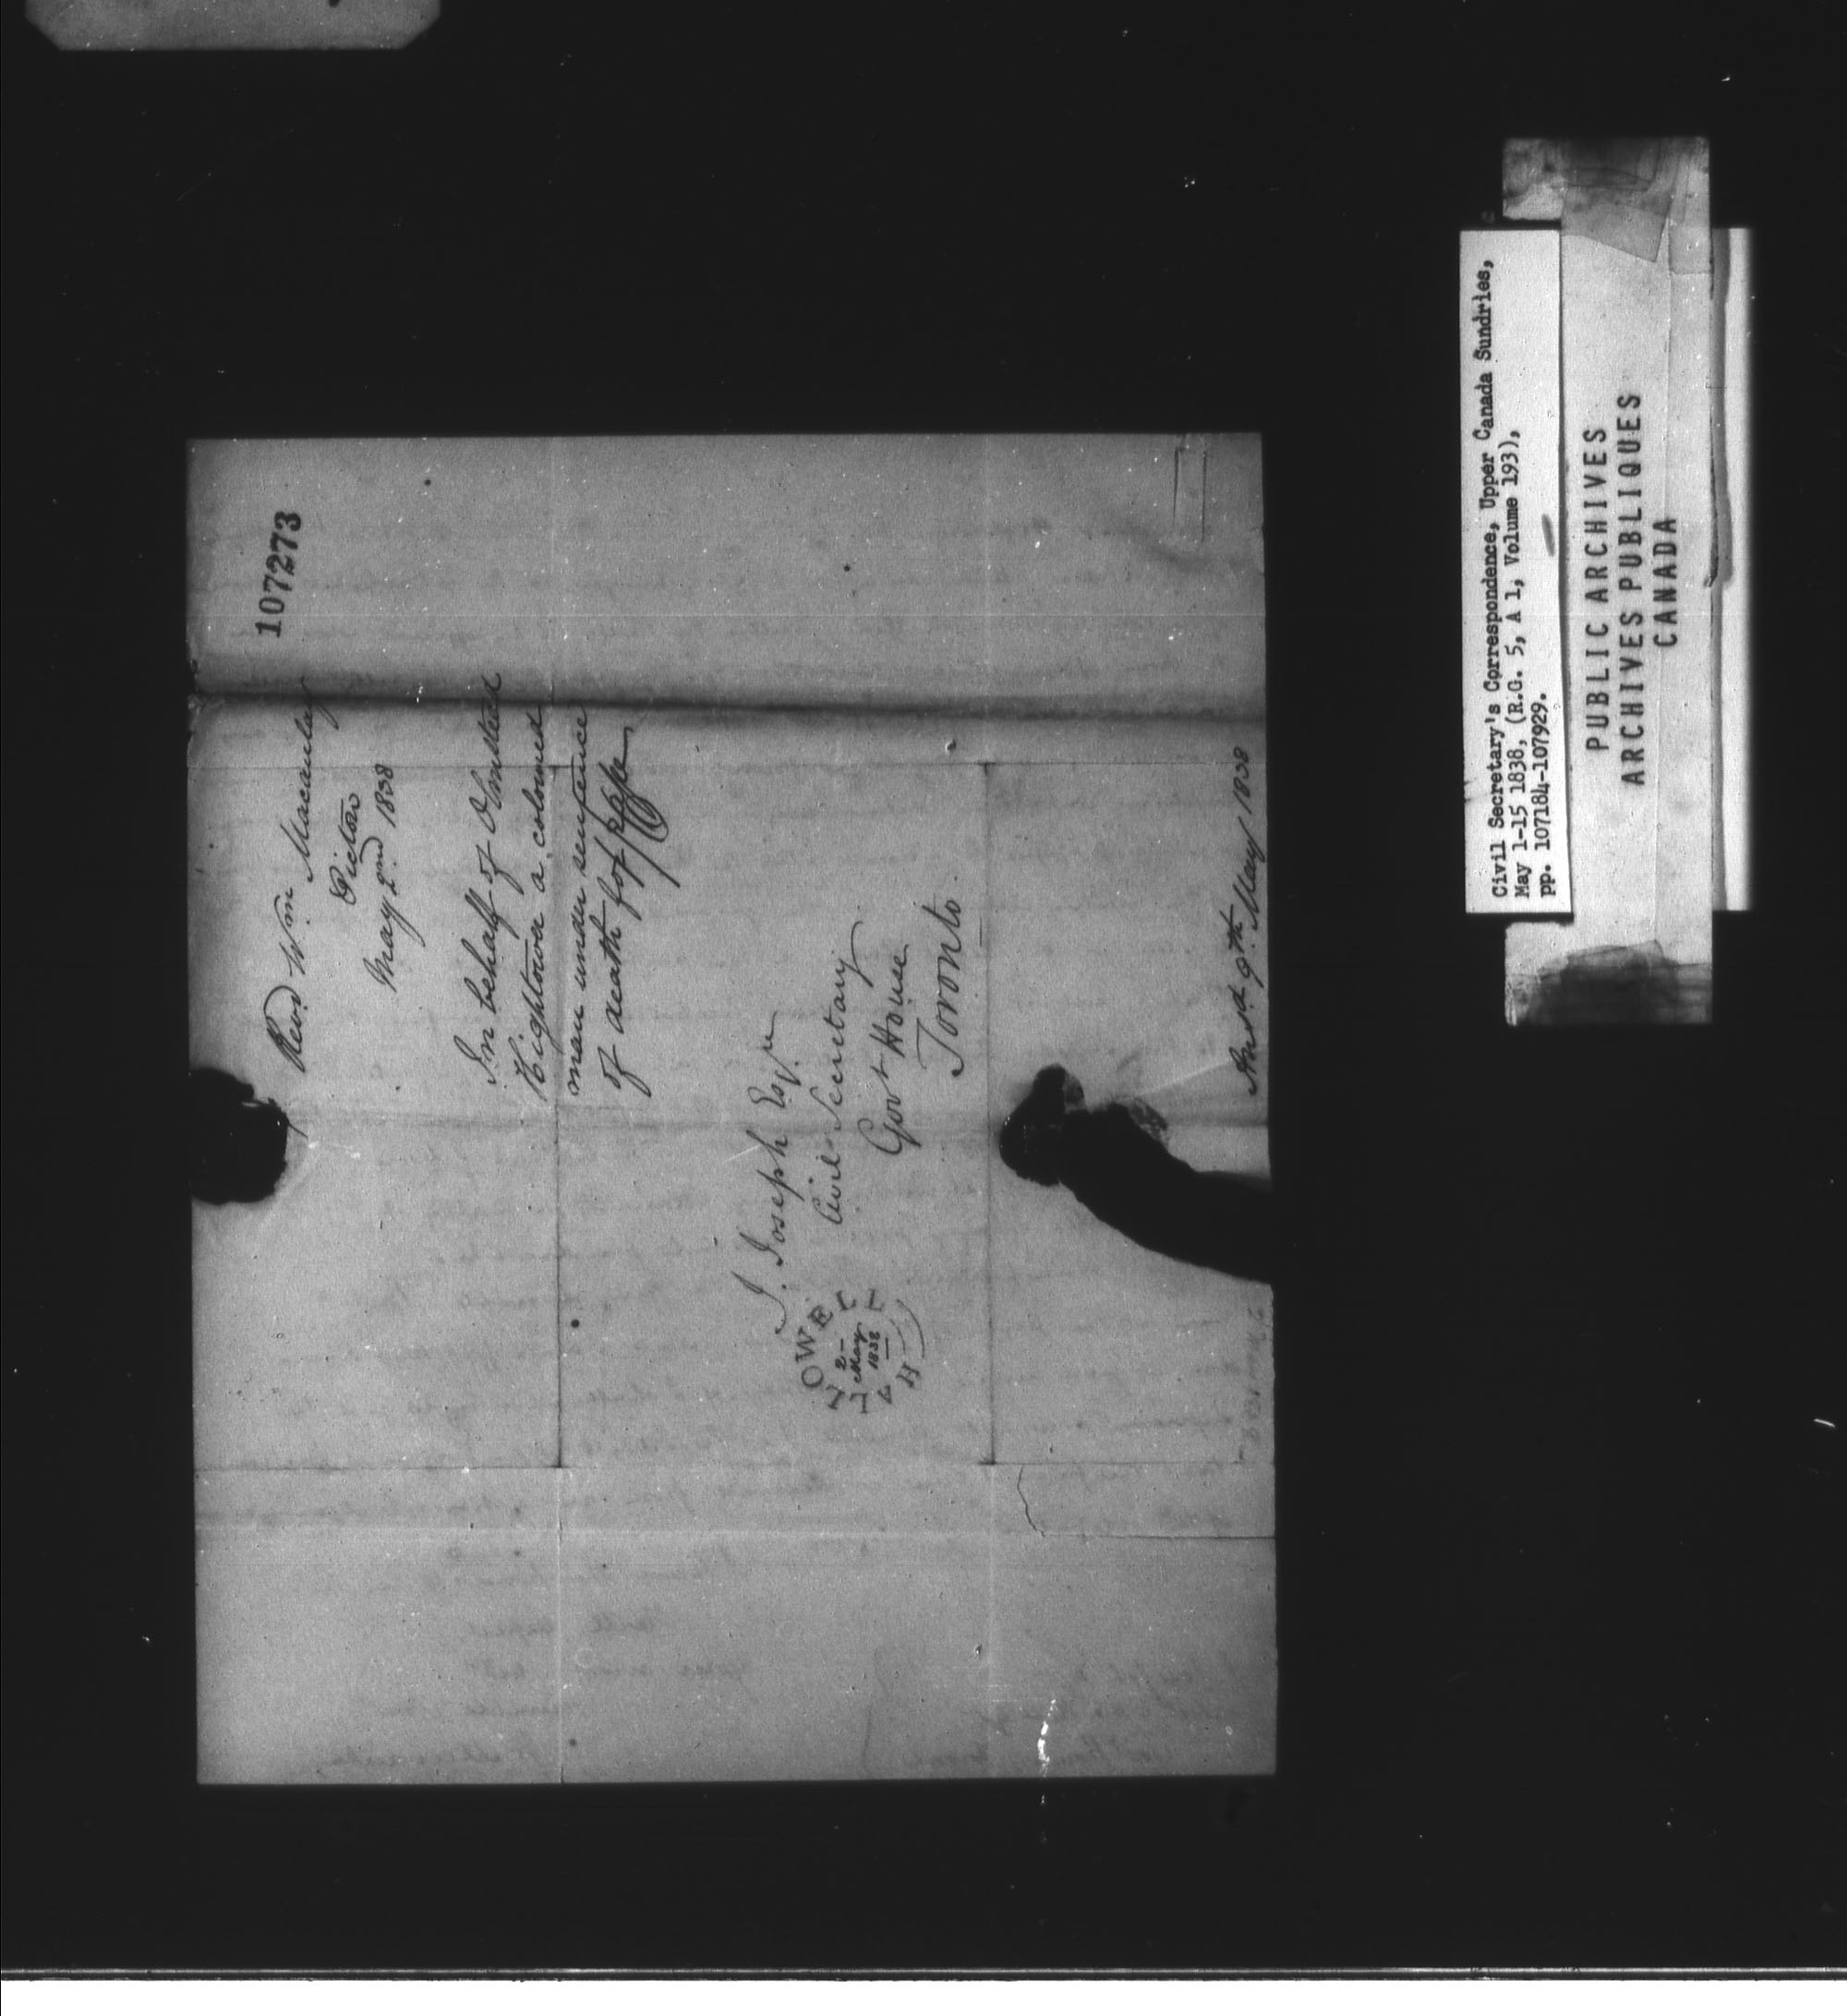 107273
Revd. Wm. Macaulay
Picton
May 2nd. 1838
In behalf of Olmstead
Hightower a coloured
man under sentence
of death for rape
J. Joseph Esqre
Civil Secretary
Govt House
Toronto
HALLOWELL
2
May
1838
Ansd. 9th. May 1838
Civil Secretary's Correspondence, Upper Canada Sundries,
May 1-15 1838, (R.G. 5, A 1, Volume 193),
pp. 107184-107929.
PUBLIC ARCHIVES
ARCHIVES PUBLIQUES
CANADA